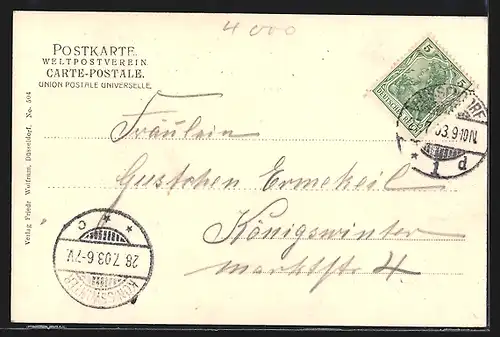 4000
POSTKARTE.
WELTPOSTVEREIN.
CARTE-POSTALE.
UNION POSTALE UNIVERSELLE.
5
DEUTSCHES REICH
03.9-10N.
* 1 P
Fräulein
Gustchen Ermekeil
Königswinter
marktstr. 4.
Verlag Friedr. Wolfrum, Düsseldorf. No. 504
* * C
28.7.03.6-7V.
KÖNIGSWINTER